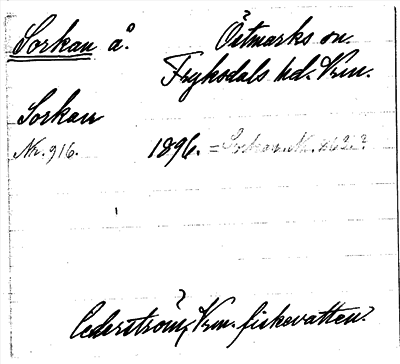 Sorkan å. Östmarks sn.
Fryksdals hd. Vrm.
Sorkan
Nr. 916. 1896. = Sorkan Nr.
Cederström, Vrm. fiskevatten.